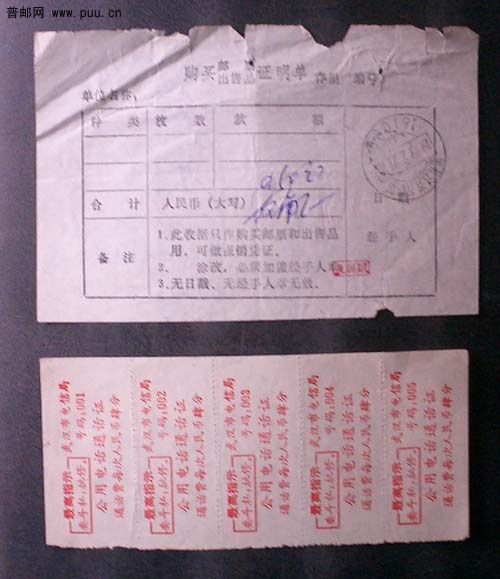 普邮网 www.puu.cn
购买邮票出售品证明单 存根 编号
单位名称：
种类 枚数 款额
合计 人民币（大写）
日戳
经手人
备注
1.此收据只作购买邮票和出售品
用，可做报销凭证。
2. 涂改，必须加盖经手人章
3.无日戳、无经手人章无效。
武汉市电信局
号码:001
公用电话通话证
通话费每次人民币肆分
最高指示
要斗私，批修。
武汉市电信局
号码:002
公用电话通话证
通话费每次人民币肆分
最高指示
要斗私，批修。
武汉市电信局
号码:003
公用电话通话证
通话费每次人民币肆分
最高指示
要斗私，批修。
武汉市电信局
号码:004
公用电话通话证
通话费每次人民币肆分
最高指示
要斗私，批修。
武汉市电信局
号码:005
公用电话通话证
通话费每次人民币肆分
最高指示
要斗私，批修。